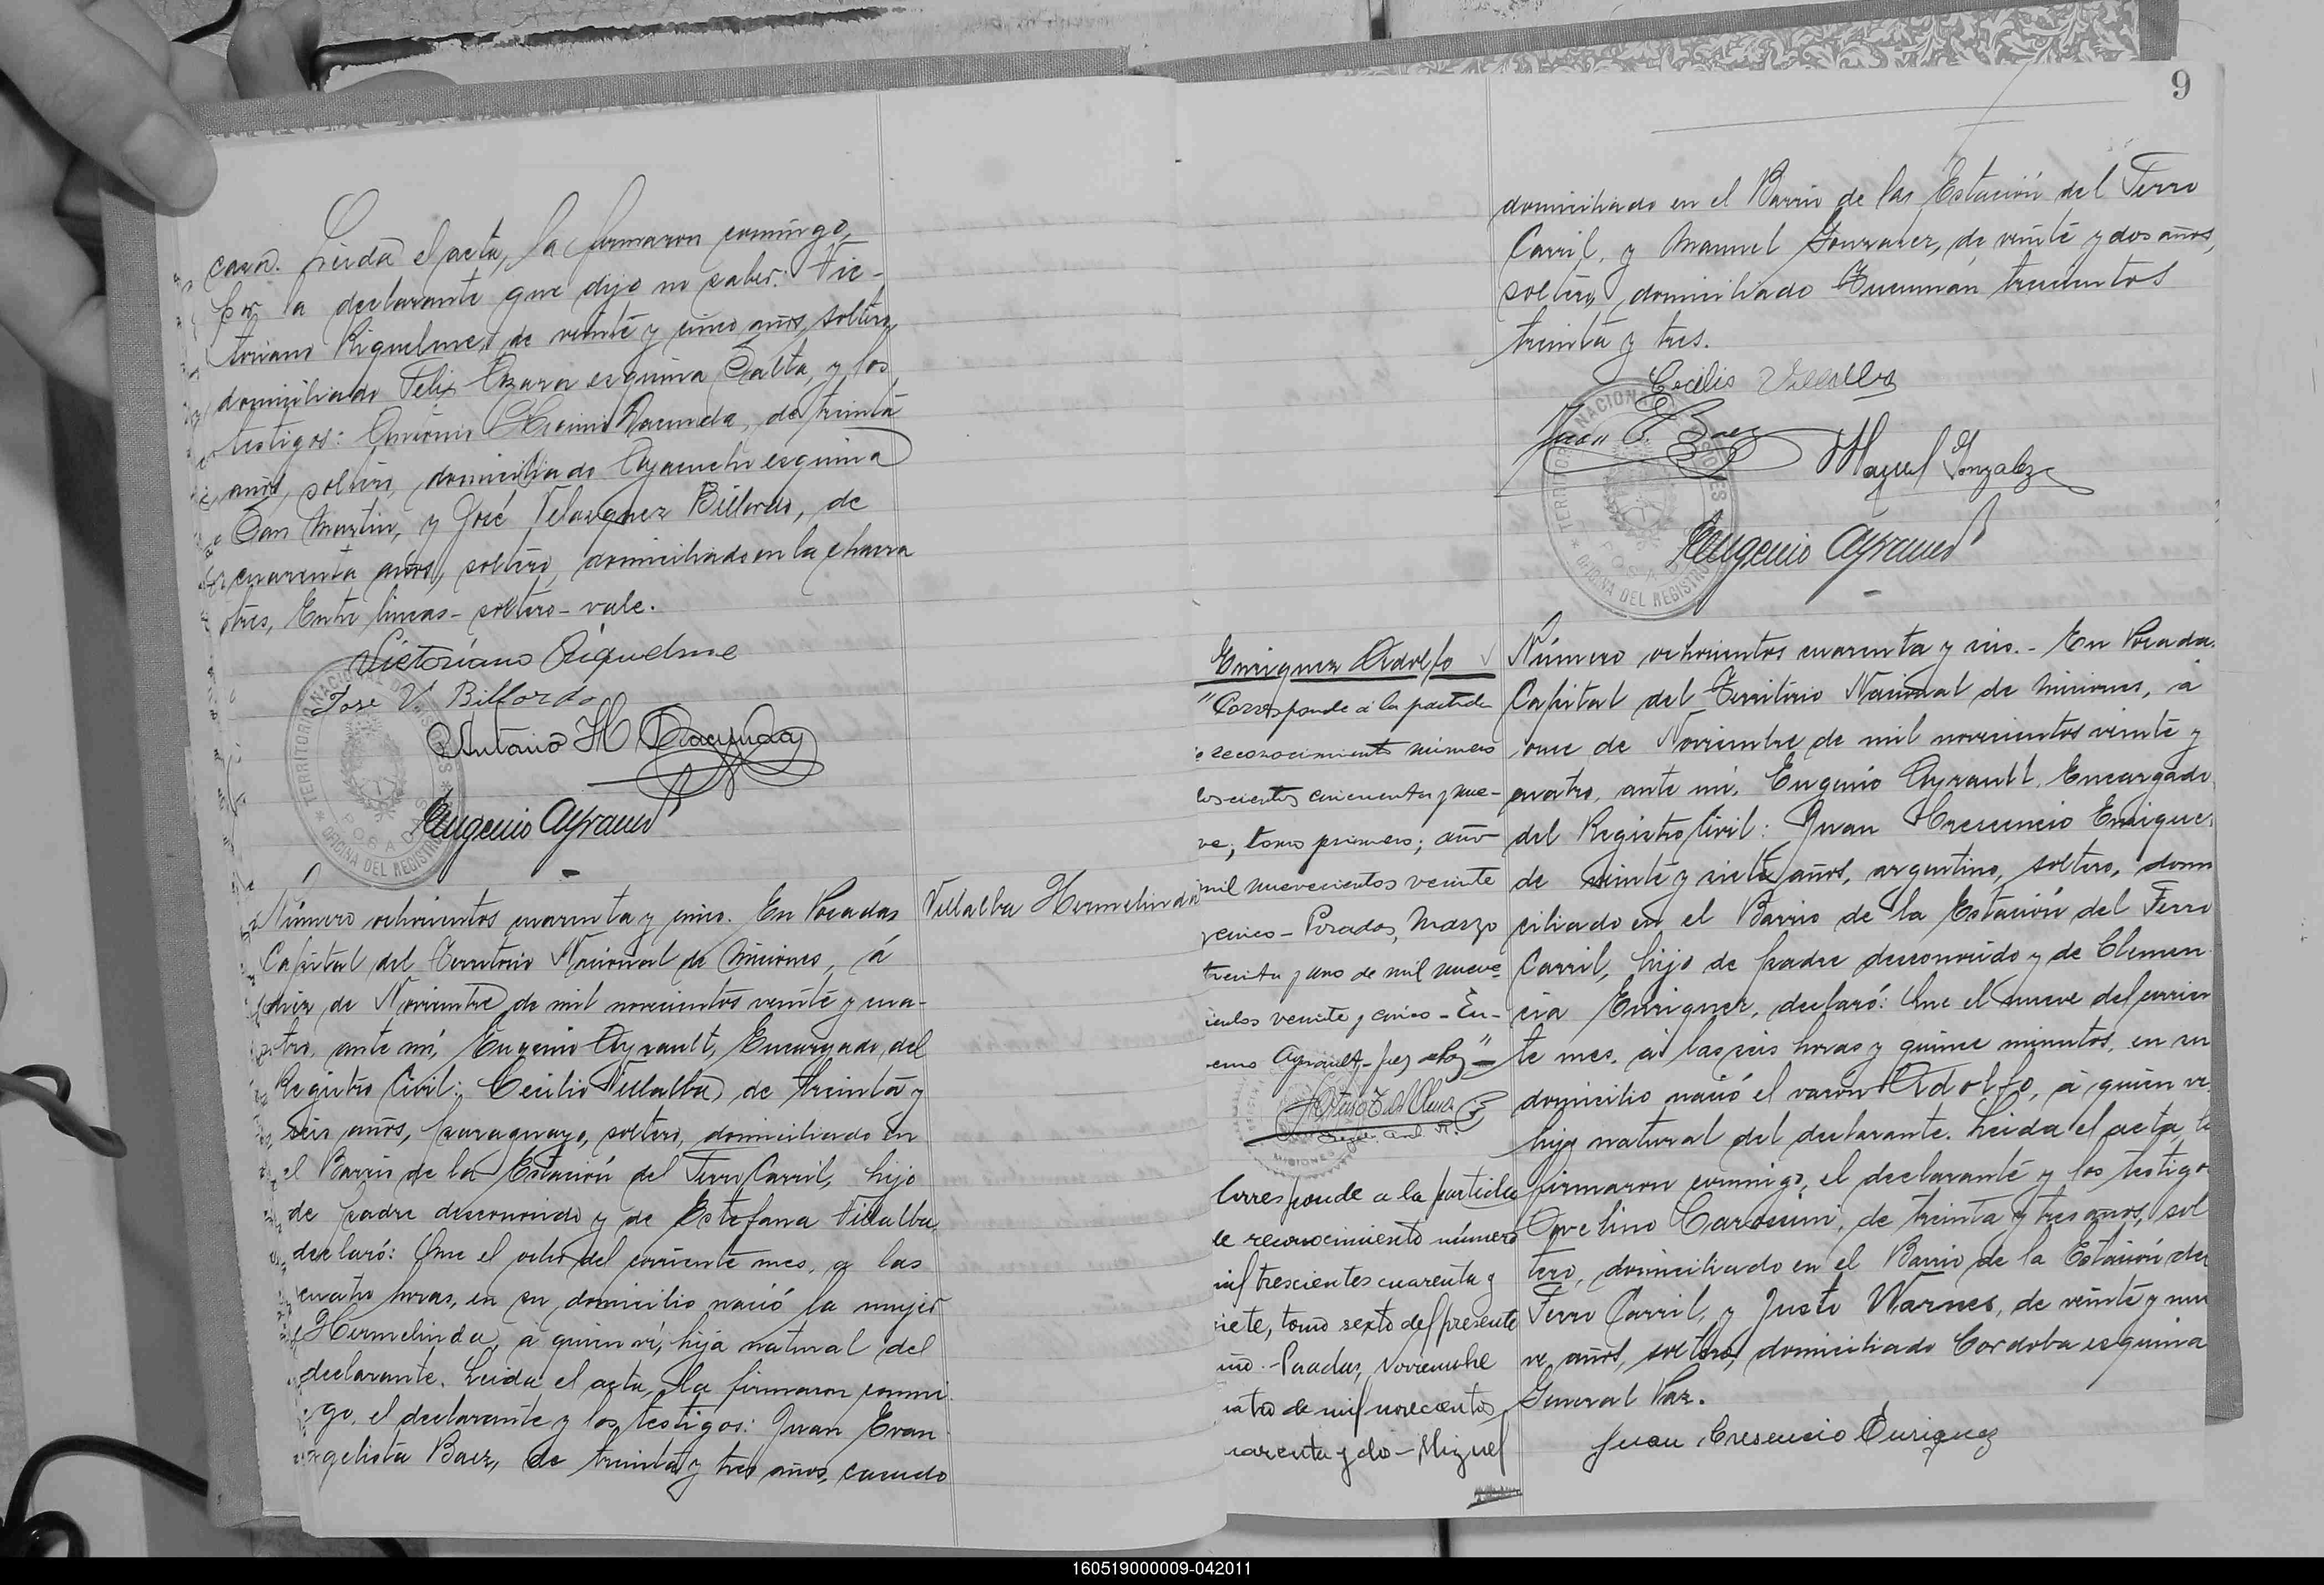 casa. Leida el acta, la firmaron conmigo,
por la declarante que dijo no saber: Vic-
toriano Riquelme, de veinte y cinco años, soltero,
domiciliado Felix Azara esquina Salta, y los
testigos: Antonio Racunda, de treinta
años, soltero, domiciliado Ayacucho esquina
San Martin, y José Velazquez Billordo, de
cuarenta años, soltero, domiciliado en la chacra
tres, Entre lineas - soltero - vale.
Victoriano Riquelme
Jose V. Billordo
Antonio H Racunda
Eugenio Ayrault
TERRITORIO NACIONAL DE MISIONES
POSADAS
OFICINA DEL REGISTRO
Villalba Hermelinda
Número ochocientos cuarenta y cinco. En Posadas
Capital del Territorio Nacional de Misiones, á
diez de Noviembre de mil novecientos veinte y cua-
tro, ante mí, Eugenio Ayrault, Encargado del
Registro Civil: Cecilio Villalba, de treinta y
seis años, paraguayo, soltero, domiciliado en
el Barrio de la Estación del Ferro Carril, hijo
de padre desconocido y de Estefana Villalba,
declaró: Que el ocho del corriente mes, a las
cuatro horas, en su domicilio nació la mujer
Hermelinda, á quien ví, hija natural del
declarante. Leida el acta, la firmaron conmi-
go, el declarante y los testigos: Juan Evan-
gelista Baez, de treinta y tres años, casado
9
domiciliado en el Barrio de las Estación del Ferro
Carril, y Manuel Gonzalez, de veinte y dos años,
soltero, domiciliado Tucumán trescientos
treinta y tres.
Cecilio Villalba
Juan E. Baez
Manuel Gonzalez
Eugenio Ayrault
TERRITORIO NACIONAL MISIONES
POSADAS
OFICINA DEL REGISTRO
Enriquez Adolfo
"Corresponde á la partida
reconocimiento número
oscientos cincuenta y nue-
ve, tomo primero; año
mil nuevecientos veinte
y cinco - Posadas, Marzo
treinta y uno de mil nueve-
cientos veinte y cinco - Eu-
genio Ayrault - Juez de Paz"
MISIONES
Corresponde a la partida
de reconocimiento número
mil trescientos cuarenta y
siete, tomo sexto del presente
año. - Posadas, Noviembre
cuatro de mil novecientos
cuarenta y do - Miguel
Número ochocientos cuarenta y seis. - En Posada
Capital del Territorio Nacional de Misiones, á
once de Noviembre de mil novecientos veinte y
cuatro, ante mí, Eugenio Ayrault, Encargado
del Registro Civil: Juan Crescencio Enrique
de veinte y siete años, argentino, soltero, domi
ciliado en el Barrio de la Estación del Ferro
Carril, hijo de padre desconocido y de Clemen
cia Enriquez, declaró: Que el nueve del corrien
te mes, á las seis horas y quince minutos, en su
domicilio nació el varon Adolfo, á quien ví
hijo natural del declarante. Leida el acta, la
firmaron conmigo, el declarante y los testigo
Avelino Carosini, de treinta y tres años, sol
tero, domiciliado en el Barrio de la Estación del
Ferro Carril, y Justo Warnes, de veinte y nue
ve años, soltero, domiciliado Cordoba esquina
General Paz.
Juan Cresencio Enriquez
160519000009-042011